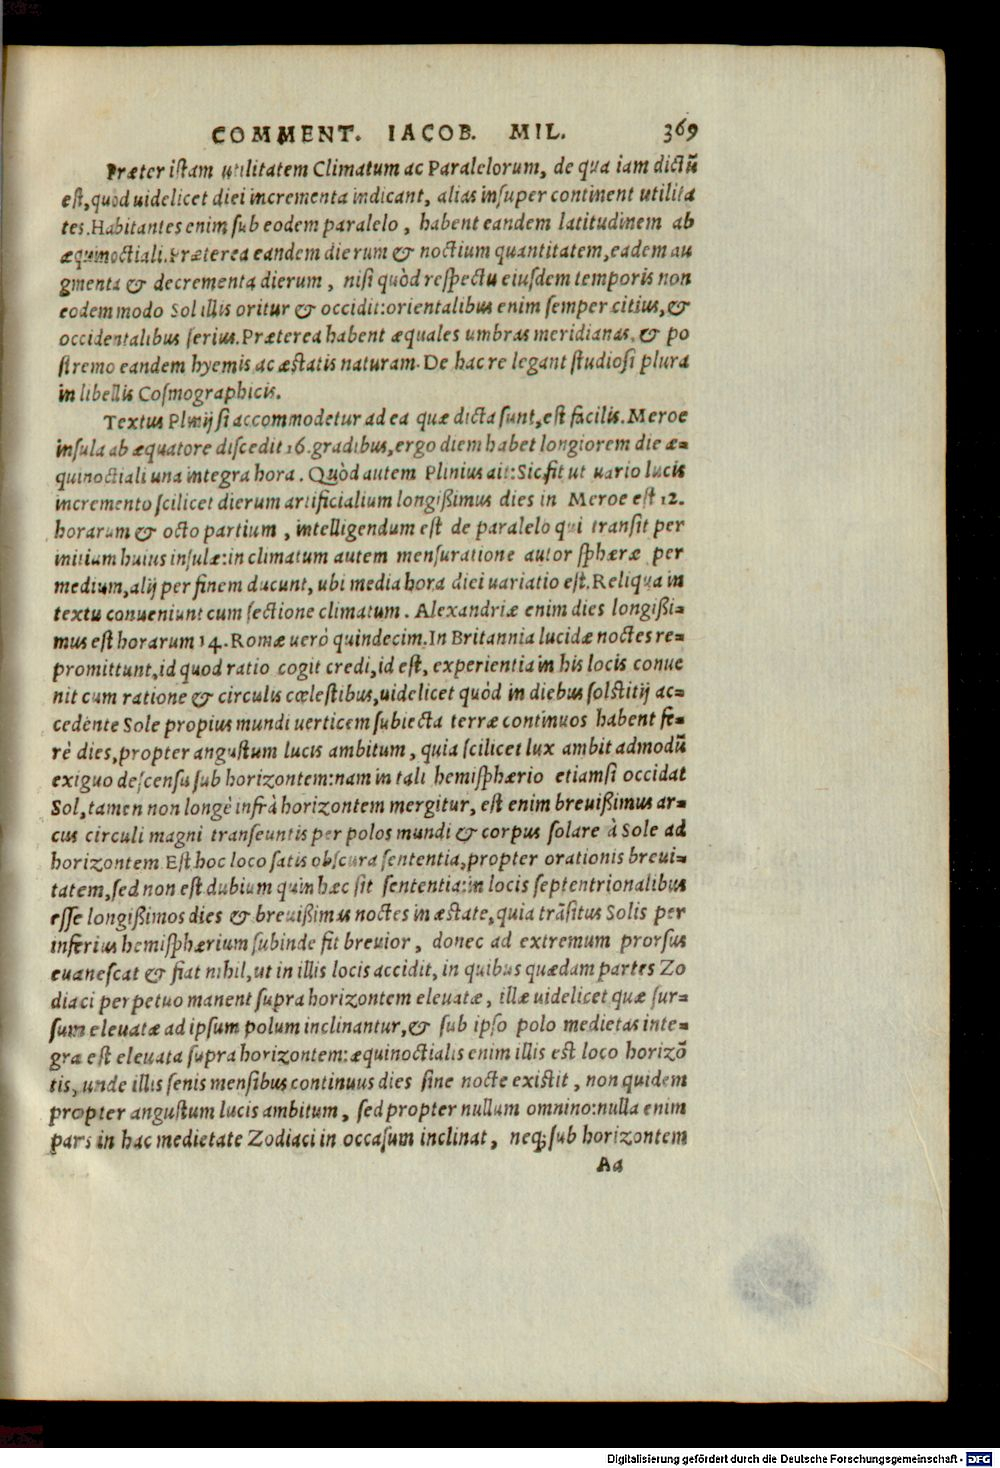 COMMENT. IACOB. MIL. 369
Præter istam utilitatem Climatum ac Paralelorum, de qua iam dictũ
est, quòd uidelicet diei incrementa indicant, alias insuper continent utilita
tes. Habitantes enim sub eodem paralelo, habent eandem latitudinem ab
æquinoctiali. Præterea eandem dierum & noctium quantitatem, eadem au
gmenta & decrementa dierum, nisi quòd respectu eiusdem temporis non
eodem modo Sol illis oritur & occidit: orientalibus enim semper citius, &
occidentalibus serius. Præterea habent æquales umbras meridianas, & po
stremo eandem hyemis ac æstatis naturam. De hac re legant studiosi plura
in libellis Cosmographicis.
Textus Plinij si accommodetur ad ea quæ dicta sunt, est facilis. Meroe
insula ab æquatore discedit 16. gradibus, ergo diem habet longiorem die æ-
quinoctiali una integra hora. Quòd autem Plinius ait: Sic fit ut uario lucis
incremento scilicet dierum artificialium longißimus dies in Meroe est 12.
horarum & octo partium, intelligendum est de paralelo qui transit per
initium huius insulæ: in climatum autem mensuratione autor sphæræ per
medium, alij per finem ducunt, ubi media hora diei uariatio est. Reliqua in
textu conueniunt cum sectione climatum. Alexandriæ enim dies longißi-
mus est horarum 14. Romæ uerò quindecim. In Britannia lucidæ noctes re-
promittunt, id quod ratio cogit credi, id est, experientia in his locis conue
nit cum ratione & circulis cœlestibus, uidelicet quòd in diebus solstitij ac-
cedente Sole propius mundi uerticem subiecta terræ continuos habent fe-
rè dies, propter angustum lucis ambitum, quia scilicet lux ambit admodũ
exiguo descensu sub horizontem: nam in tali hemisphærio etiamsi occidat
Sol, tamen non longè infrà horizontem mergitur, est enim breuißimus ar-
cus circuli magni transeuntis per polos mundi & corpus solare à Sole ad
horizontem. Est hoc loco satis obscura sententia, propter orationis breui-
tatem, sed non est dubium quin hæc sit sententia: in locis septentrionalibus
esse longißimos dies & breuißimas noctes in æstate, quia trãsitus Solis per
inferius hemisphærium subinde fit breuior, donec ad extremum prorsus
euanescat & fiat nihil, ut in illis locis accidit, in quibus quædam partes Zo
diaci perpetuo manent supra horizontem eleuatæ, illæ uidelicet quæ sur-
sum eleuatæ ad ipsum polum inclinantur, & sub ipso polo medietas inte-
gra est eleuata supra horizontem: æquinoctialis enim illis est loco horizõ
tis, unde illis senis mensibus continuus dies sine nocte existit, non quidem
propter angustum lucis ambitum, sed propter nullum omnino: nulla enim
pars in hac medietate Zodiaci in occasum inclinat, neq; sub horizontem
Aa
Digitalisierung gefördert durch die Deutsche Forschungsgemeinschaft - DFG